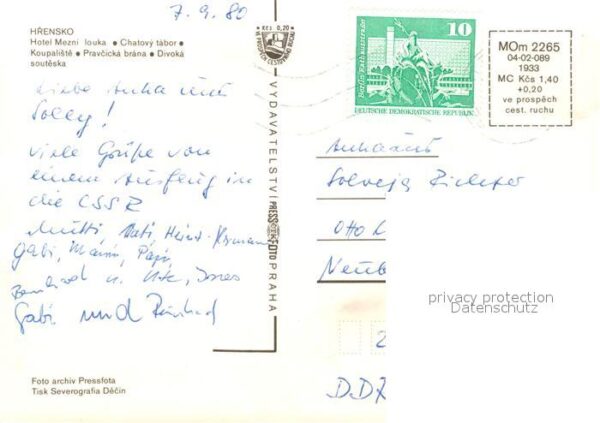 7.9.80
HŘENSKO
Hotel Mezní louka • Chatový tábor •
Koupaliště • Pravčická brána • Divoká
soutěska
Kčs 0,20
Liebe Anka und
Solvy!
Viele Grüße von
einem Ausflug in
die CSSR
Mutti, Vati, Heinz-
Gabi, Papa,
u. Ute, Ines
Gabi und
Foto archiv Pressfota
Tisk Severografia Děčín
VYDAVATELSTVÍ PRESSFOTO PRAHA
10
Berlin, Rathausstraße
DEUTSCHE DEMOKRATISCHE REPUBLIK
MOm 2265
04-02-089
1933
MC Kčs 1,40
+0,20
ve prospěch
cest. ruchu
Solveja Richter
Otto
Neub
privacy protection
Datenschutz
2
DDR